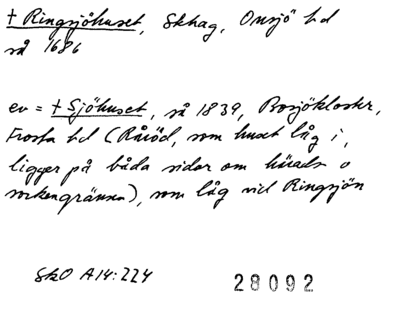 † Ringsjöhuset, Skhag, Onsjö hd
så 1686
ev = † Sjöhuset, så 1839, Bosjökloster,
Frosta hd (Råröd, som huset låg i,
ligger på båda sidor om härads- o
sockengränsen), som låg vid Ringsjön
SkO A14:224
28092